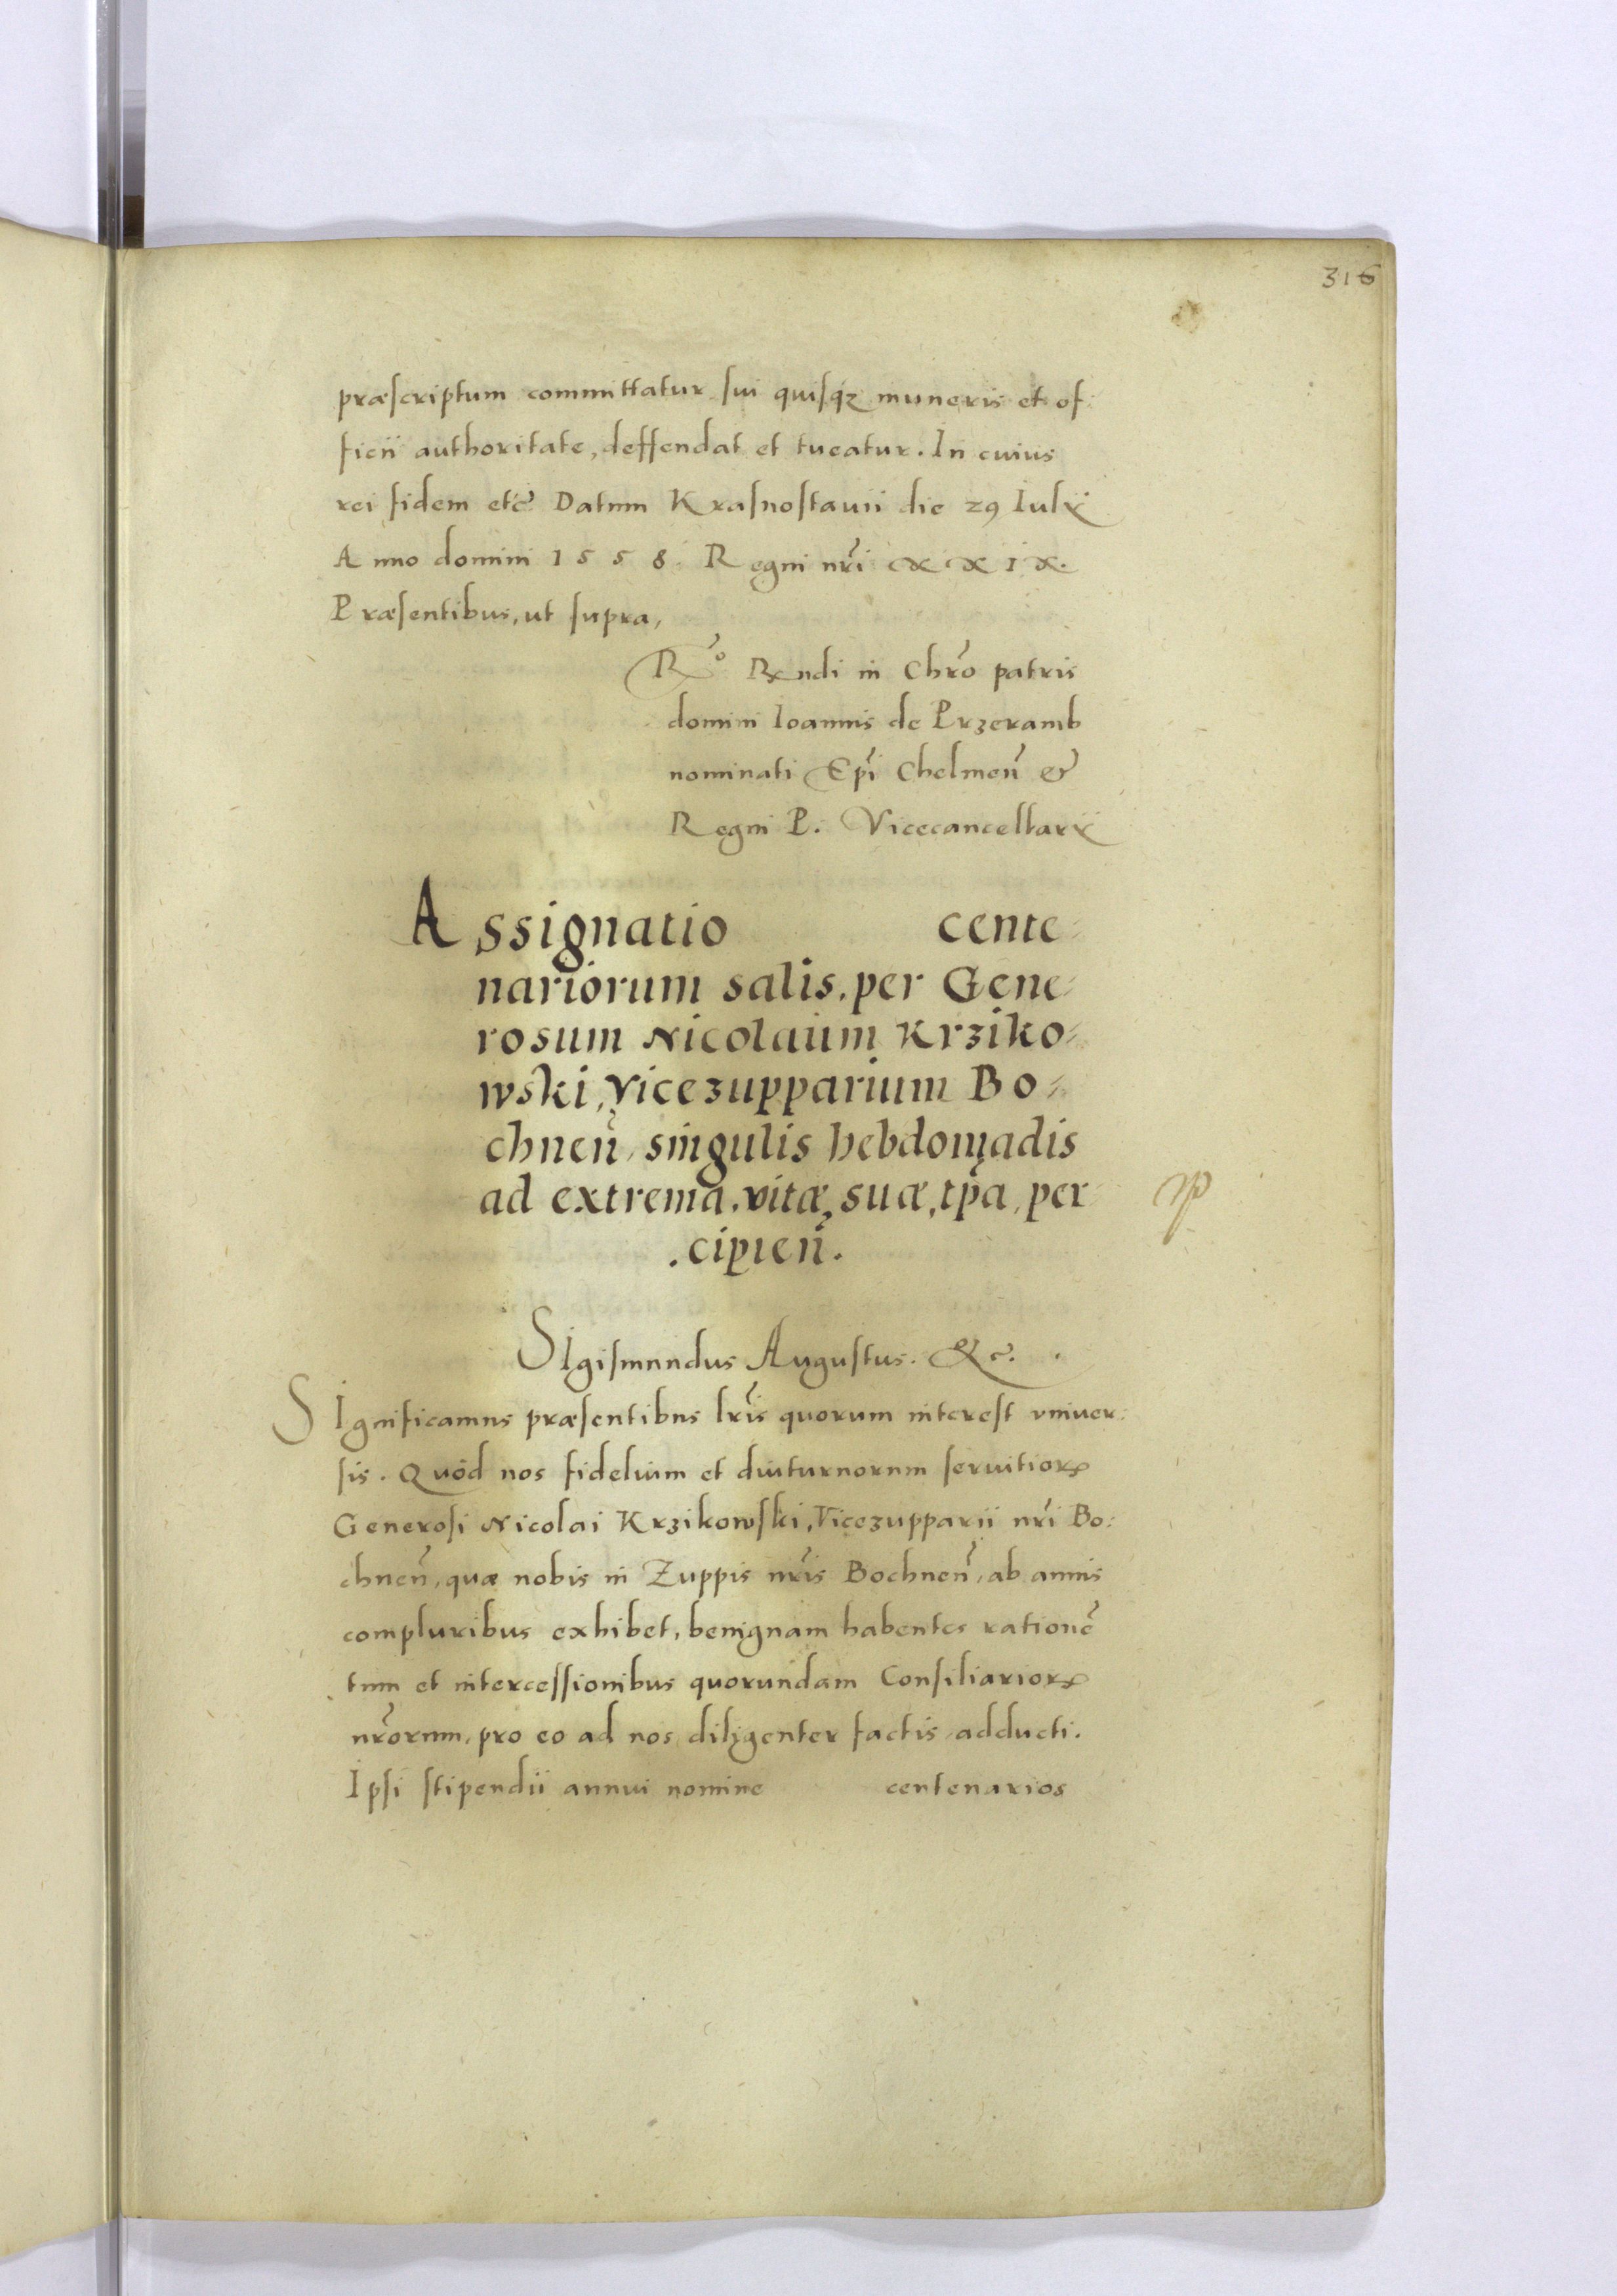 316
præscriptum committatur sui quisq; muneris et of:
ficii authoritate, deffendat et tueatur. In cuius
rei fidem etc̃ Datum Krasnostauii die 29 Iulii
Anno domini 1558. Regni nr̃i XXIX.
Præsentibus, ut supra,
Rõ Rndi in Chr̃o patris
domini Ioannis de Przeramb
nominati Ep̃i Chelmeñ &
Regni P. Vicecancellarii
Assignatio cente=
nariorum salis, per Gene=
rosum Nicolaum Krziko=
wski, Vicezupparium Bo=
chneñ, singulis hebdomadis
ad extrema, vitæ, suæ, tp̃a, per
.cipieñ.
SIgismundus Augustus. &c.
SIgnificamus præsentibus lr̃is quorum interest vniuer:
sis. Quòd nos fidelium et diuturnorum seruitiorꝝ
Generosi Nicolai Krzikowski, Vicezupparii nr̃i Bo:
chneñ, quæ nobis in Zuppis nr̃is Bochneñ, ab annis
compluribus exhibet, benignam habentes rationẽ
tum et intercessionibus quorundam Consiliariorꝝ
nr̃orum, pro eo ad nos diligenter factis adducti.
Ipsi stipendii annui nomine centenarios